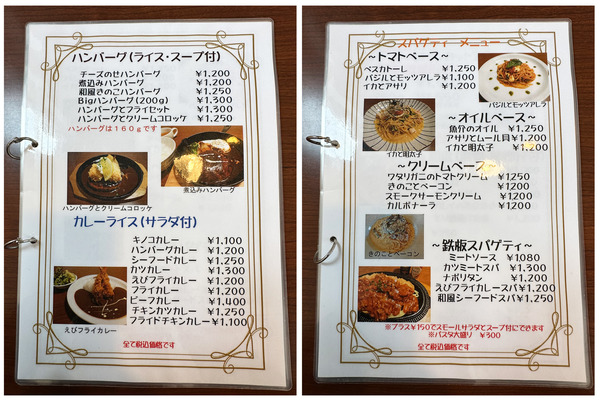 ハンバーグ(ライス・スープ付)
チーズのせハンバーグ ¥1,200
煮込みハンバーグ ¥1,200
和風きのこハンバーグ ¥1,250
Bigハンバーグ(200g) ¥1,300
ハンバーグとフライセット ¥1,300
ハンバーグとクリームコロッケ ¥1,250
ハンバーグは160gです
煮込みハンバーグ
ハンバーグとクリームコロッケ
カレーライス(サラダ付)
キノコカレー ¥1,100
ハンバーグカレー ¥1,200
シーフードカレー ¥1,250
カツカレー ¥1,300
えびフライカレー ¥1,200
フライカレー ¥1,200
ビーフカレー ¥1,400
チキンカツカレー ¥1,250
フライドチキンカレー ¥1,100
えびフライカレー
全て税込価格です
スパゲティーメニュー
~トマトベース~
ペスカトーレ ¥1,250
バジルとモッツアレラ ¥1,100
イカとアサリ ¥1,200
バジルとモッツアレラ
~オイルベース~
魚介のオイル ¥1,250
アサリとムール貝 ¥1,200
イカと明太子 ¥1,200
イカと明太子
~クリームベース~
ワタリガニのトマトクリーム ¥1,250
きのことベーコン ¥1,200
スモークサーモンクリーム ¥1,200
カルボナーラ ¥1,200
きのことベーコン
~鉄板スパゲティ~
ミートソース ¥1080
カツミートスパ ¥1,300
ナポリタン ¥1,200
えびフライカレースパ ¥1,200
和風シーフードスパ ¥1,250
※プラス¥150でスモールサラダとスープ付にできます
※パスタ大盛り ¥300
全て税込価格です